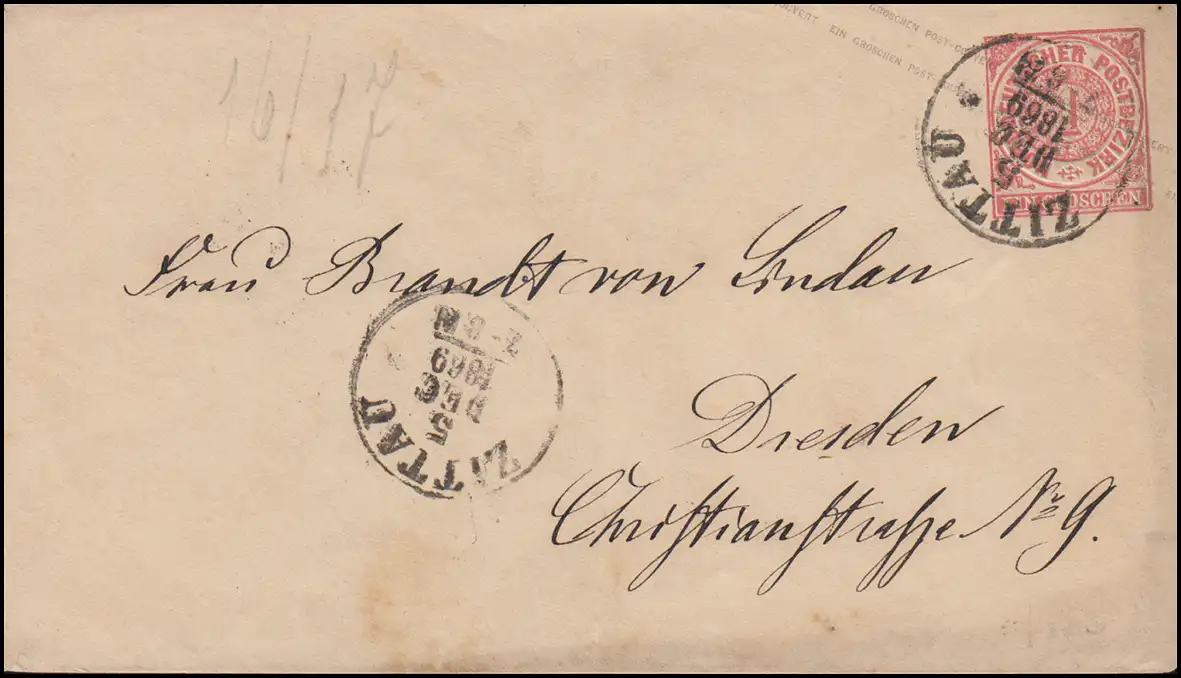 OUVERT EIN GROSCHEN POST-
GROSCHEN POST-COUVE
NORDDEUTSCHER POSTBEZIRK
1
EIN GROSCHEN
ZITTAU
5
DEC
1869
16/17
Frau Brandt von Lindau
ZITTAU
5
DEC
1869
Dresden
Christianstraße Nr 9.